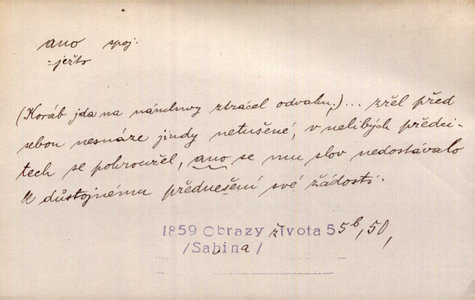 ano spoj.
:ježto
(Koráb jda na námluvy ztrácel odvahu,)... zřel před
sebou nesnáze jindy netušené, v nelibých předci-
tech se pohroužel, ano se mu slov nedostávalo
k důstojnému přednešení své žádosti.
1859 Obrazy života 5 5b, 50,
/Sabina/